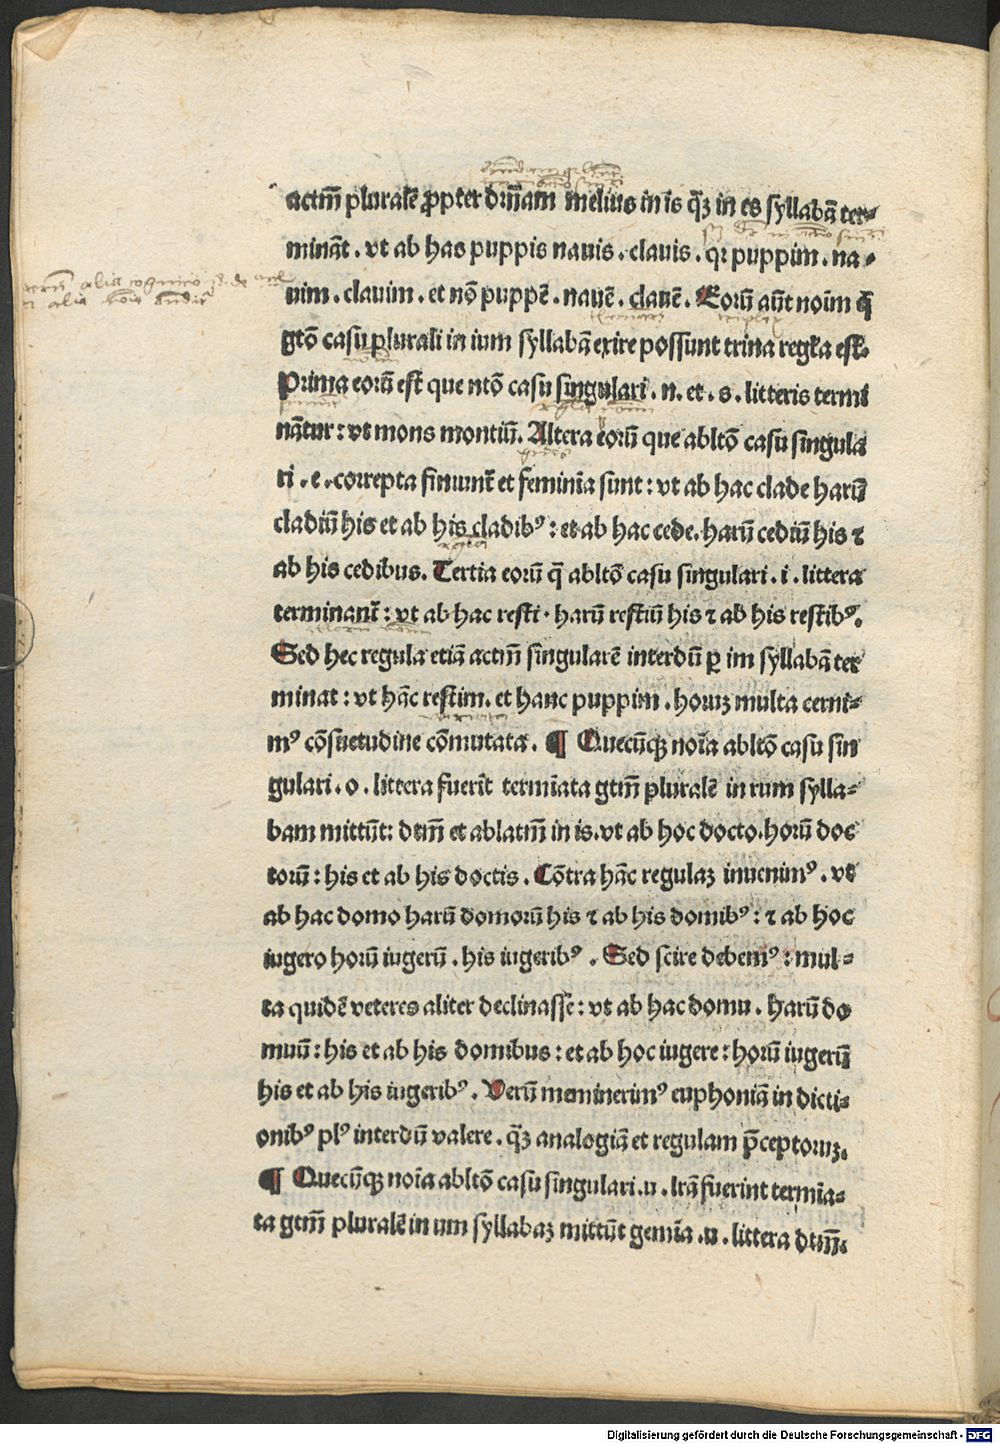 actm̄ pluralē ꝓpter dr̄nam melius in is q̄ꝫ in es syllabā ter⸗
mināt . vt ab has puppis nauis . clauis . qꝛ puppim . na⸗
uim . clauim . et nō puppē . nauē . clauē . Eorū aūt noīm q̄
gtō casu plurali in ium syllabā exire possunt trina regĺa est.
Prima eorū est que ntō casu singulari . n . et . s . litteris termi
nātur : vt mons montiū . Altera eorū que abltō casu singula
ri . e . correpta finiunt̄ et feminīa sunt : vt ab hac clade harū
cladiū his et ab his cladibꝰ : et ab hac cede . harū cediū his ⁊
ab his cedibus . Tertia eorū q̄ abltō casu singulari . i . littera
terminant̄ : vt ab hac resti . harū restiū his ⁊ ab his restibꝰ .
Sed hec regula etiā actm̄ singularē interdū ꝑ im syllabā ter
minat : vt hāc restim . et hanc puppim . hoꝝ multa cerni⸗
mꝰ cōsuetudine cōmutata . ¶ Quecūqꝫ noīa abltō casu sin
gulari . o . littera fuerīt termīata gtm̄ pluralē in rum sylla⸗
bam mittūt : dtm̄ et ablatm̄ in is . vt ab hoc docto . horū doc
torū : his et ab his doctis . Cōtra hāc regulaꝫ inuenimꝰ . vt
ab hac domo harū domorū his ⁊ ab his domibꝰ : ⁊ ab hoc
iugero horū iugerū . his iugeribꝰ . Sed scire debemꝰ : mul⸗
ta quidē veteres aliter declinasse : vt ab hac domu . harū do
muū : his et ab his domibus : et ab hoc iugere : horū iugerū
his et ab his iugeribꝰ . Verū meminerimꝰ euphoniā in dicti⸗
onibꝰ plꝰ interdū valere . q̄ꝫ analogiā et regulam p̄ceptoꝝ.
¶ Quecūqꝫ noīa abltō casu singulari . u . lr̄a fuerint termīa⸗
ta gtm̄ pluralē in um syllabaꝫ mittūt gemīa . u . littera dtm̄.
Digitalisierung gefördert durch die Deutsche Forschungsgemeinschaft - DFG